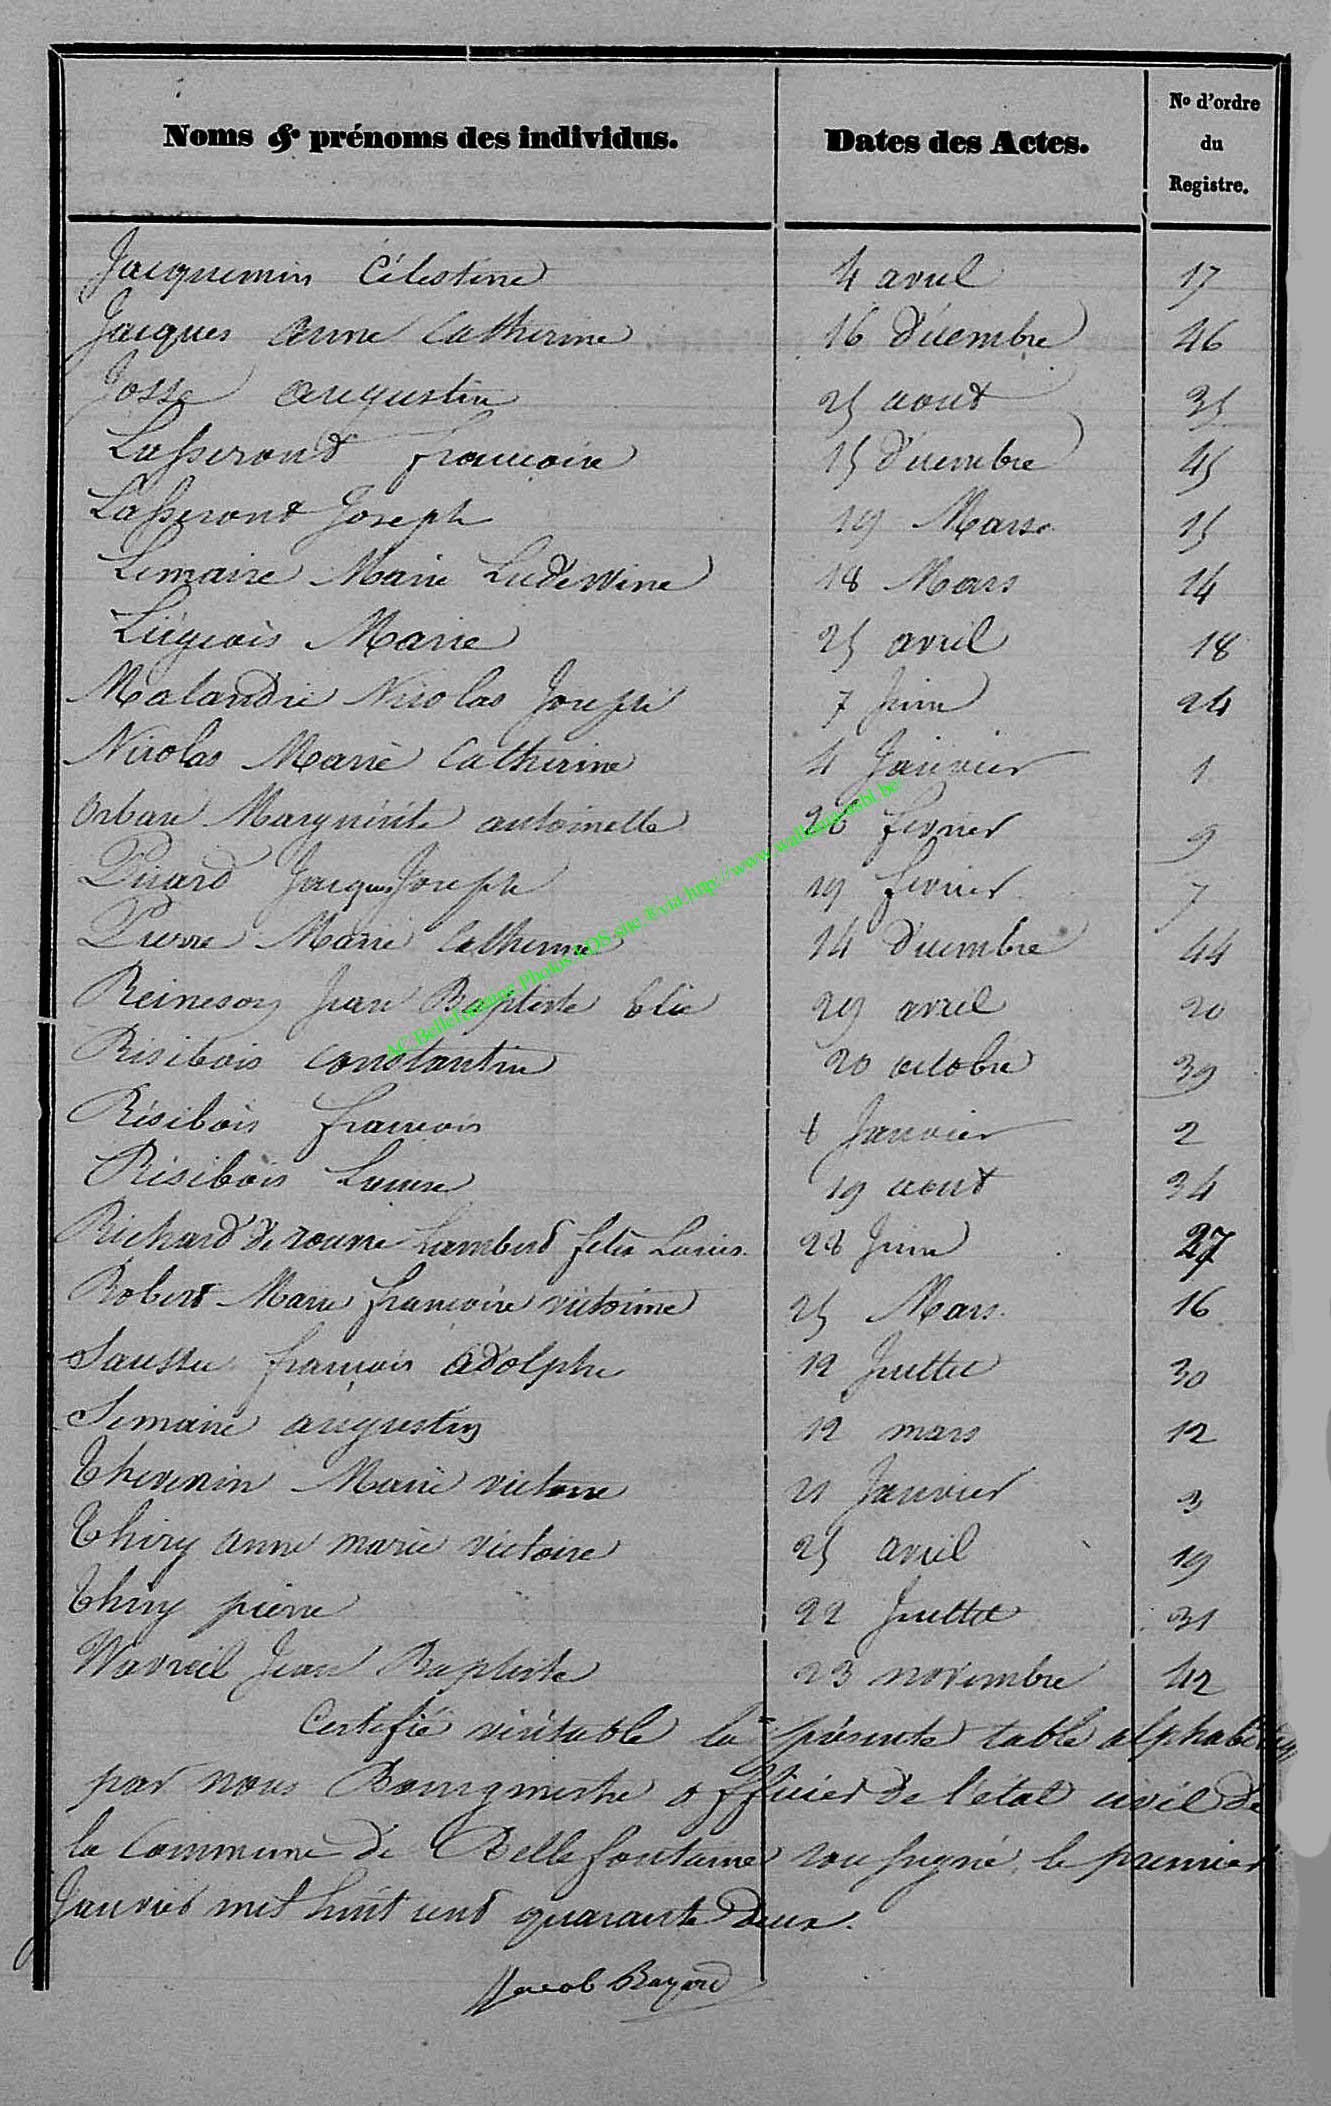 Noms & prénoms des individus. Dates des Actes. No d'ordre du Registre.
Jacquemin Célestine 4 avril 17
Jacques anne Catherine 16 décembre 46
Josse augustin 25 aout 35
Lasseront francoise 15 décembre 45
Lasseront Joseph 19 Mars 15
Lemaire Marie Ludewine 18 Mars 14
Liégeois Marie 25 avril 18
Malandré Nicolas Joseph 7 Juin 24
Nicolas Marie Catherine 4 Janvier 1
orban Marguérite antoinette 26 fevrier 9
Pirard Jacques Joseph 19 fevrier 7
Pierre Marie Catherine 14 décembre 44
Reineson Jean Baptiste Elie 29 avril 20
Risibois Constantin 20 octobre 39
Résibois francois 8 Janvier 2
Risibois Louise 19 aout 34
Richard de Lambert felix Louis 28 Juin 27
Robert Marie francoise victorine 25 Mars 16
francois adolphe 12 Juillet 30
Semaire augustin 12 mars 12
Thevenin Marie victoire 21 Janvier 3
Thiry anne marie victoire 25 avril 19
Thiry pierre 22 Juillet 31
Wavreil Jean Baptiste 23 novembre 42
Certifié véritable la présente table alphabétique
par nous Bourgmestre officier de l'état civil de
la Commune de Bellefontaine soussigné, le premier
Janvier mil huit cent quarante deux.
Jacob Bayard
AC Bellefontaine Photos LDS site ®via http://www.wallonia-asbl.be/